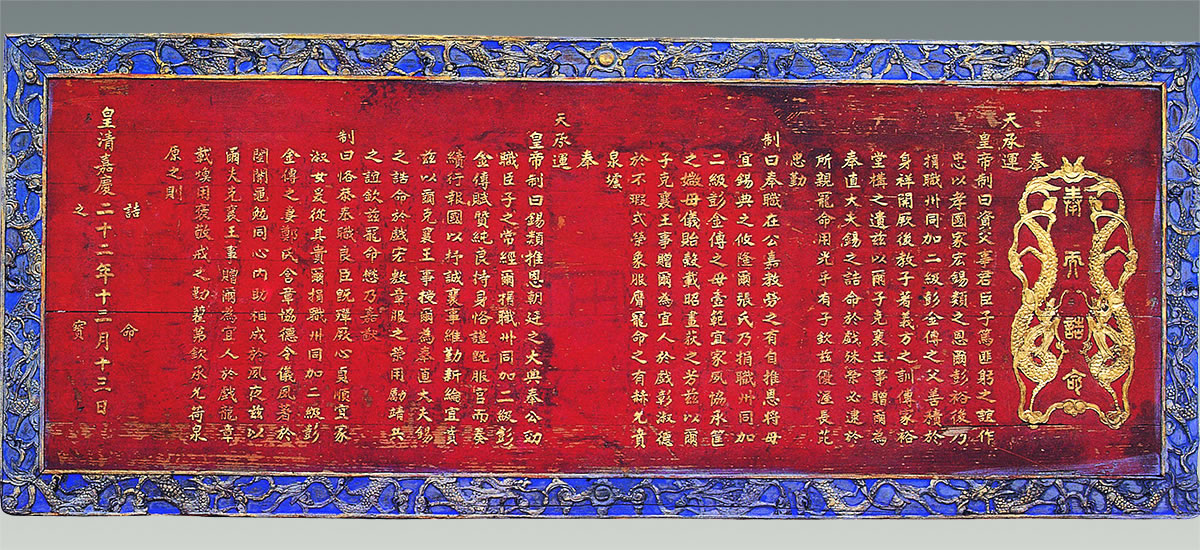 奉天誥命
奉
天承運
皇帝制曰資父事君臣子篤匪躬之誼作
忠以孝國家宏錫類之恩爾彭裕後乃
捐職州同加二級彭金傳之父善積於
身祥開厥後教子著義方之訓傳家裕
堂構之遺茲以爾子克襄王事贈爾為
奉直大夫錫之誥命於戲殊榮必逮於
所親寵命用光乎有子欽茲優渥長芘
忠勤
制曰奉職在公嘉教勞之有自推恩將母
宜錫典之攸隆爾張氏乃捐職州同加
二級彭金傳之母壼範宜家夙協承筐
之媺母儀貽穀載昭畫荻之芳茲以爾
子克襄王事贈爾為宜人於戲彰淑德
於不瑕式榮象服膺寵命之有赫允賁
泉壚
奉
天承運
皇帝制曰錫類推恩朝廷之大典奉公効
職臣子之常經爾捐職州同加二級彭
金傳賦質純良持身恪謹既服官而奏
績行報國以抒誠襄事維勤新綸宜賁
茲以爾克襄王事授爾為奉直大夫錫
之誥命於戲宏敷章服之榮用勵靖共
之誼欽茲寵命懋乃嘉猷
制曰恪恭奉職良臣既殫厥心貞順宜家
淑女爰從其貴爾捐職州同加二級彭
金傳之妻鄭氏含章協德令儀夙著於
閨闈黽勉同心內助相成於夙夜茲以
爾夫克襄王事贈爾為宜人於戲龍章
載煥用褒敬戒之勤翟茀欽承允荷泉
原之則
誥命
皇清嘉慶二十二年十三月十三日
之寶